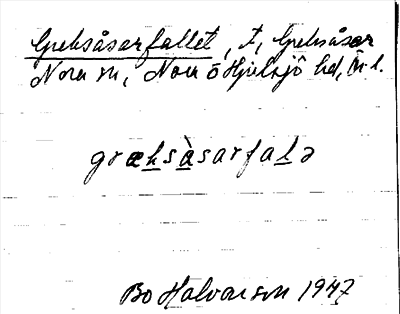 Greksåsarfallet, t, Greksåsar
Nora sn, Nora o Hjulsjö hd, Ö. l.
græksàsarfalə
Bo Halvarson 1947